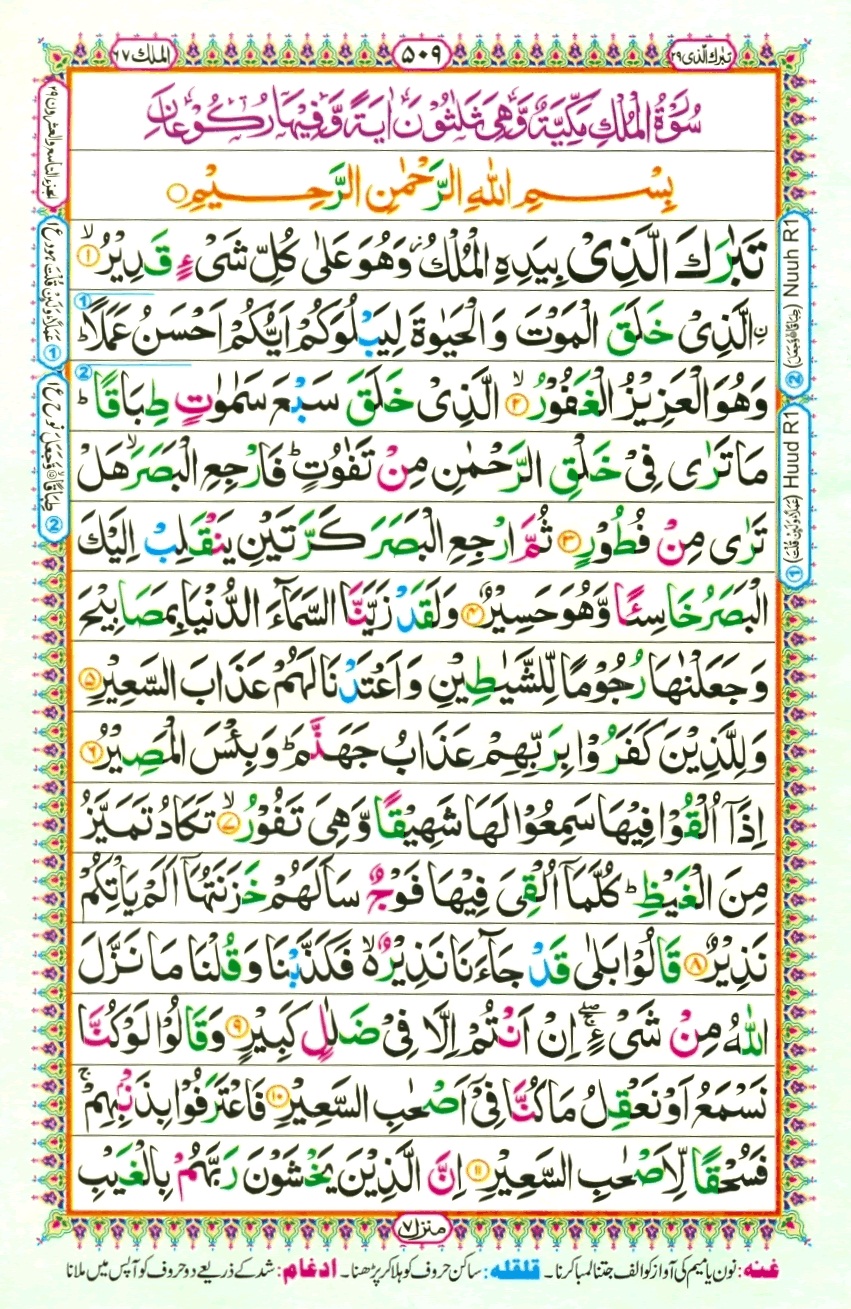 تبٰرك الّذی ۲۹
۵۰۹
الملك ۶۷
سُوْرَةُ الْمُلْكِ مَكِّيَّةٌ وَّهِيَ ثَلٰثُوْنَ اٰيَةً وَّفِيْهَا رُكُوْعَانِ
بِسْمِ اللهِ الرَّحْمٰنِ الرَّحِيْمِ
تَبٰرَكَ الَّذِىْ بِيَدِهِ الْمُلْكُ ؗ وَهُوَ عَلٰى كُلِّ شَىْءٍ قَدِيْرُ ۙ‏﴿۱﴾
ۨالَّذِىْ خَلَقَ الْمَوْتَ وَالْحَيٰوةَ لِيَبْلُوَكُمْ اَيُّكُمْ اَحْسَنُ عَمَلًا ؕ
وَهُوَ الْعَزِيْزُ الْغَفُوْرُ ۙ‏﴿۲﴾ الَّذِىْ خَلَقَ سَبْعَ سَمٰوٰتٍ طِبَاقًا ؕ
مَا تَرٰى فِىْ خَلْقِ الرَّحْمٰنِ مِنْ تَفٰوُتٍ ؕ فَارْجِعِ الْبَصَرَ ۙ هَلْ
تَرٰى مِنْ فُطُوْرٍ ‏﴿۳﴾ ثُمَّ ارْجِعِ الْبَصَرَ كَرَّتَيْنِ يَنْقَلِبْ اِلَيْكَ
الْبَصَرُ خَاسِئًا وَّهُوَ حَسِيْرٌ ‏﴿۴﴾ وَلَقَدْ زَيَّنَّا السَّمَآءَ الدُّنْيَا بِمَصَابِيْحَ
وَجَعَلْنٰهَا رُجُوْمًا لِّلشَّيٰطِيْنِ وَاَعْتَدْنَا لَهُمْ عَذَابَ السَّعِيْرِ ‏﴿۵﴾
وَلِلَّذِيْنَ كَفَرُوْا بِرَبِّهِمْ عَذَابُ جَهَنَّمَ ؕ وَبِئْسَ الْمَصِيْرُ ‏﴿۶﴾
اِذَاۤ اُلْقُوْا فِيْهَا سَمِعُوْا لَهَا شَهِيْقًا وَّهِىَ تَفُوْرُ ۙ‏﴿۷﴾ تَكَادُ تَمَيَّزُ
مِنَ الْغَيْظِ ؕ كُلَّمَاۤ اُلْقِىَ فِيْهَا فَوْجٌ سَاَلَهُمْ خَزَنَتُهَاۤ اَلَمْ يَاْتِكُمْ
نَذِيْرٌ ‏﴿۸﴾ قَالُوْا بَلٰى قَدْ جَآءَنَا نَذِيْرٌ ۙ فَكَذَّبْنَا وَقُلْنَا مَا نَزَّلَ
اللّٰهُ مِنْ شَىْءٍ ۖۚ اِنْ اَنْتُمْ اِلَّا فِىْ ضَلٰلٍ كَبِيْرٍ ‏﴿۹﴾ وَقَالُوْا لَوْ كُنَّا
نَسْمَعُ اَوْ نَعْقِلُ مَا كُنَّا فِىْۤ اَصْحٰبِ السَّعِيْرِ ‏﴿۱۰﴾ فَاعْتَرَفُوْا بِذَنْۢبِهِمْ ۚ
فَسُحْقًا لِّاَصْحٰبِ السَّعِيْرِ ‏﴿۱۱﴾ اِنَّ الَّذِيْنَ يَخْشَوْنَ رَبَّهُمْ بِالْغَيْبِ
② (طِبَاقًا وَّجَعَلَ) Nuuh R1
① (عَمَلًا وَلَئِنْ قُلْتَ) Huud R1
الجزء التاسع والعشرون ۲۹
عَمَلًا وَلَئِنْ قُلْتَ ہود ع۱ ①
طِبَاقًا وَّجَعَلَ نُوح ع۱ ②
منزل ۷
غنه: نون یا میم کی آواز کو الف جتنا لمبا کرنا۔ قلقله: ساکن حروف کو ہلا کر پڑھنا۔ ادغام: شد کے ذریعے دو حروف کو آپس میں ملانا